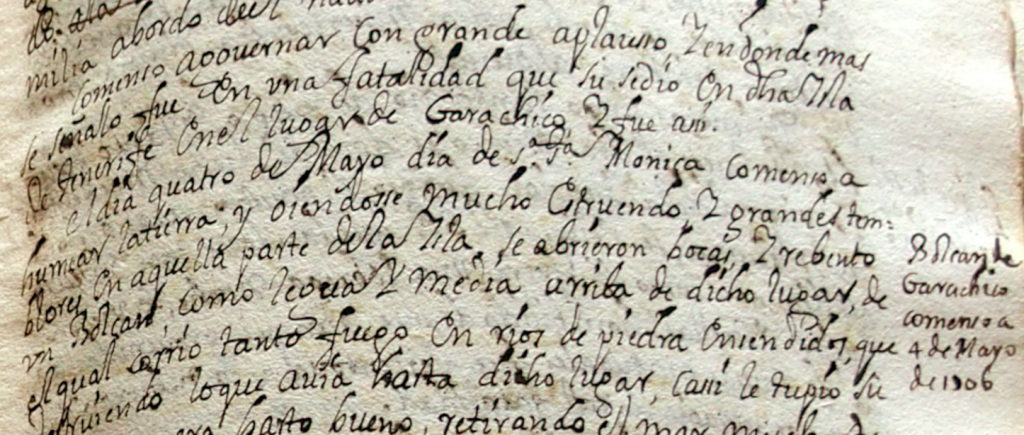 milia abordo del
comenso agovernar Con grande aplauso, Y en donde mas
se señalo fue En vna fatalidad que su sedio En dha Isla
de tenerife En el lugar de Garachico Y fue asi.
el dia quatro de Mayo dia de s.ta Monica Comenso a
humear la tierra, y oiendosse Mucho Estruendo, Y grandes tem=
blores En aquella parte de la Isla, se abrieron bocas, Y rebento
vn Bolcan, como legua Y media arriba de dicho lugar, de
el qual corrio tanto fuego En rios de piedra Ensendidos, que
destruiendo lo que auia hasta dicho lugar, Casi le tupio su
harto bueno, retirando el mar mucho
Bolcan de
Garachico
comenso a
4 de Mayo
de 1706